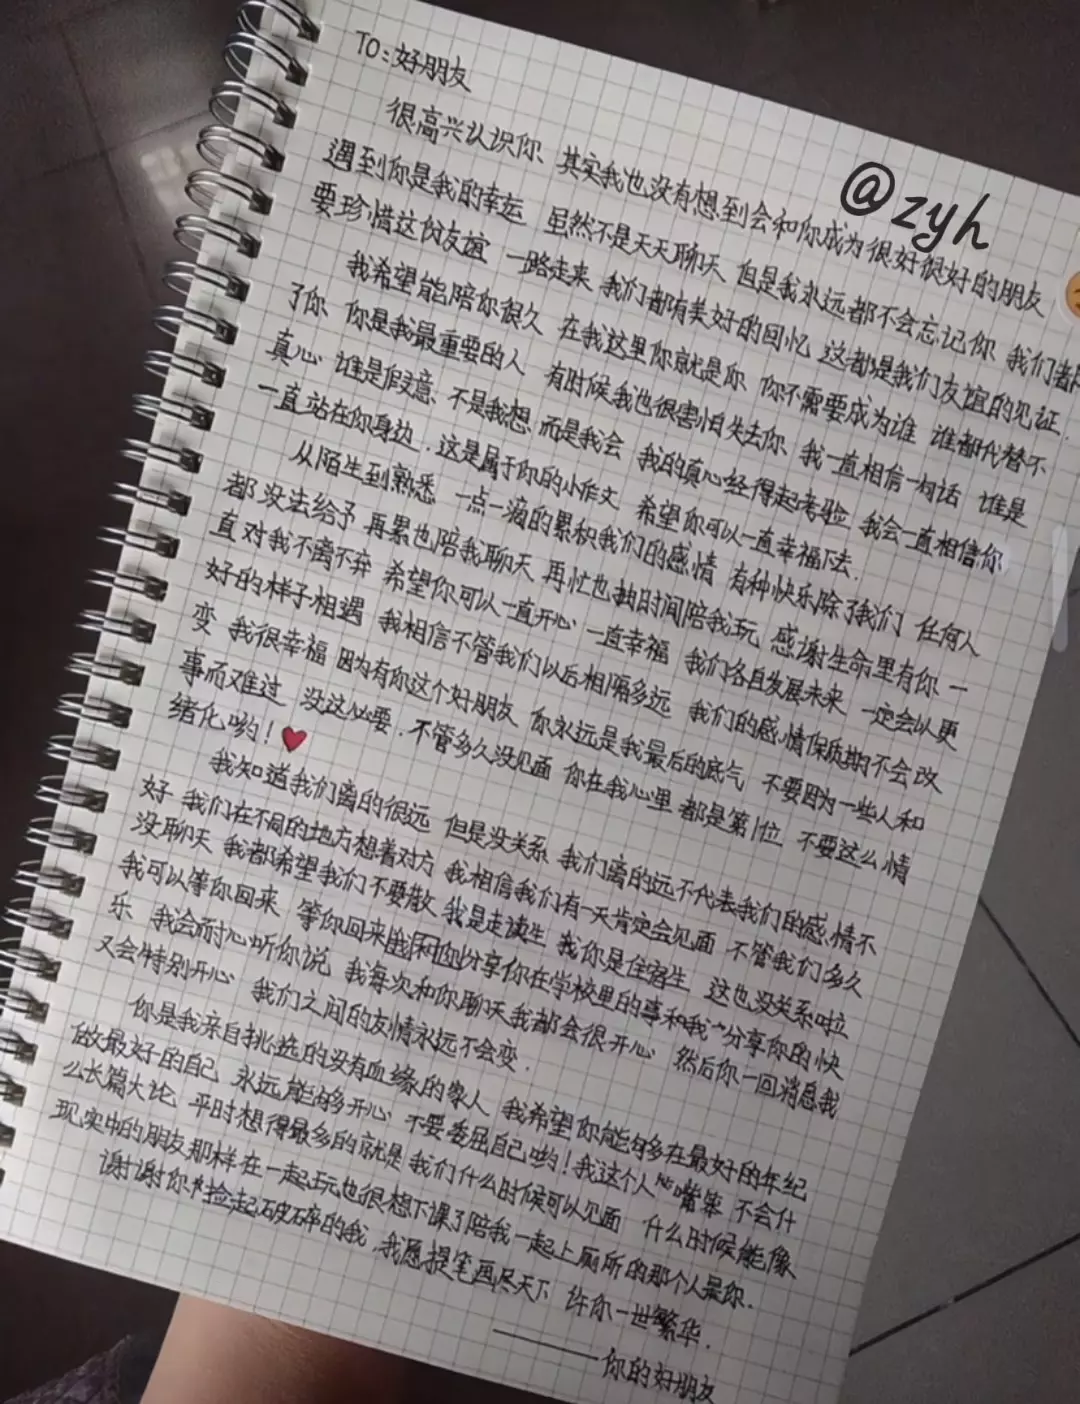 TO:好朋友
很高兴认识你、其实我也没有想到会和你成为很好很好的朋友
遇到你是我的幸运 虽然不是天天聊天 但是我永远都不会忘记你 我们都
要珍惜这份友谊 一路走来 我们都有美好的回忆 这都是我们友谊的见证.
我希望能陪你很久 在我这里你就是你 你不需要成为谁 谁都代替不
了你 你是我最重要的人 有时候我也很害怕失去你 我一直相信一句话 谁是
真心 谁是假意、不是我想 而是我会 我的真心经得起考验 我会一直相信你
一直站在你身边.这是属于你的小作文 希望你可以一直幸福下去.
从陌生到熟悉 一点一滴的累积我们的感情 有种快乐除了我们 任何人
都没法给予 再累也陪我聊天 再忙也抽时间陪我玩 感谢生命里有你 一
直对我不离不弃 希望你可以一直开心 一直幸福 我们各自发展未来 一定会以更
好的样子相遇 我相信不管我们以后相隔多远 我们的感情保质期不会改
变 我很幸福 因为有你这个好朋友 你永远是我最后的底气 不要因为一些人和
事而难过 没这必要.不管多久没见面 你在我心里 都是第1位 不要这么情
绪化哟!
我知道我们离的很远 但是没关系 我们离的远不代表我们的感情不
好 我们在不同的地方想着对方 我相信我们有一天肯定会见面 不管我们多久
没聊天 我都希望我们不要散 我是走读生 我你是住宿生 这也没关系啦
我可以等你回来 等你回来分享你在学校里的事和我~分享你的快
乐 我会耐心听你说 我每次和你聊天我都会很开心 然后你一回消息我
又会特别开心 我们之间的友情永远不会变.
你是我亲自挑选的没有血缘的家人 我希望你能够多在最好的年纪
做最好的自己 永远能够开心 不要委屈自己哟!我这个人嘴笨 不会什
么长篇大论 平时想得最多的就是我们什么时候可以见面 什么时候能像
现实中的朋友那样在一起玩也很想下课了陪我一起上厕所的那个人是你.
谢谢你捡起破碎的我.我愿提笔画尽天下 许你一世繁华.
——你的好朋友
@zyh